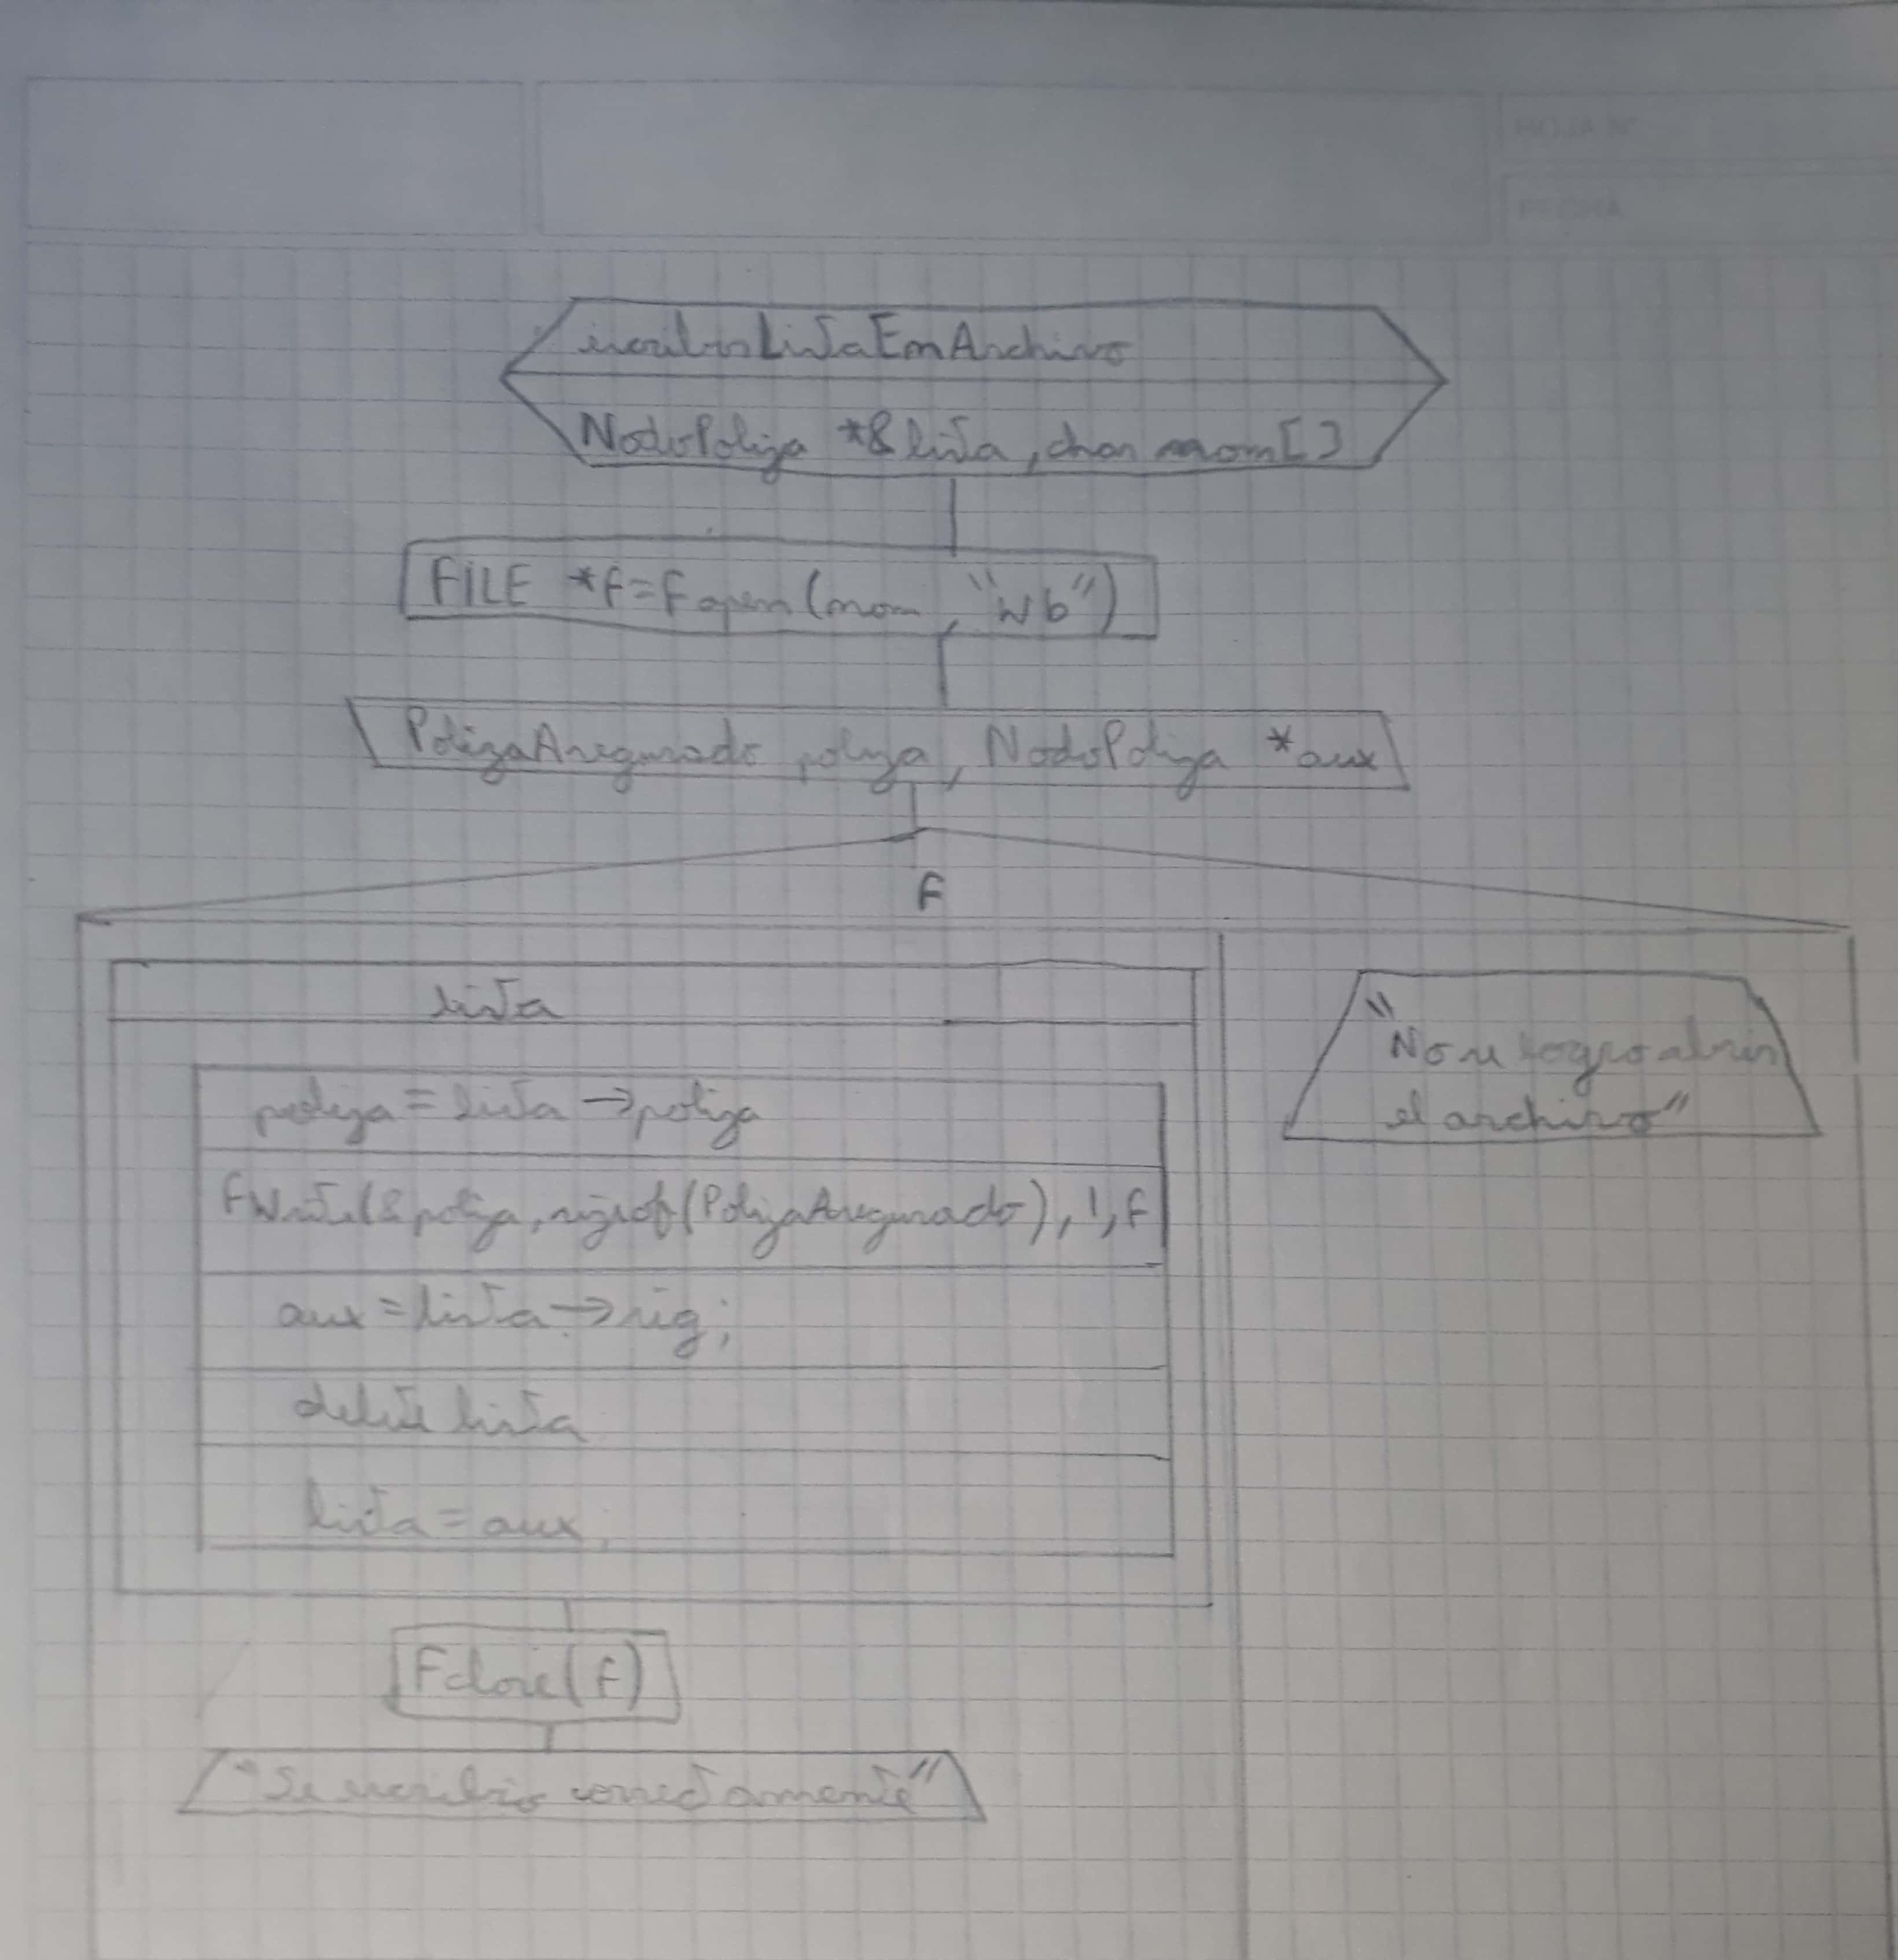 HOJA Nº
FECHA
escribirListaEnArchivo
NodoPoliza *& lista, char nom[]
FILE *f=Fopen(nom, "wb")
PolizaAsegurado poliza, NodoPoliza *aux
F
lista
poliza = lista →poliza
FWrite(& poliza, sizeof(PolizaAsegurado), 1, F
aux = lista → sig;
delete lista
lista = aux;
"No se logro abrir
el archivo"
Fclose(f)
"Se escribio correctamente"